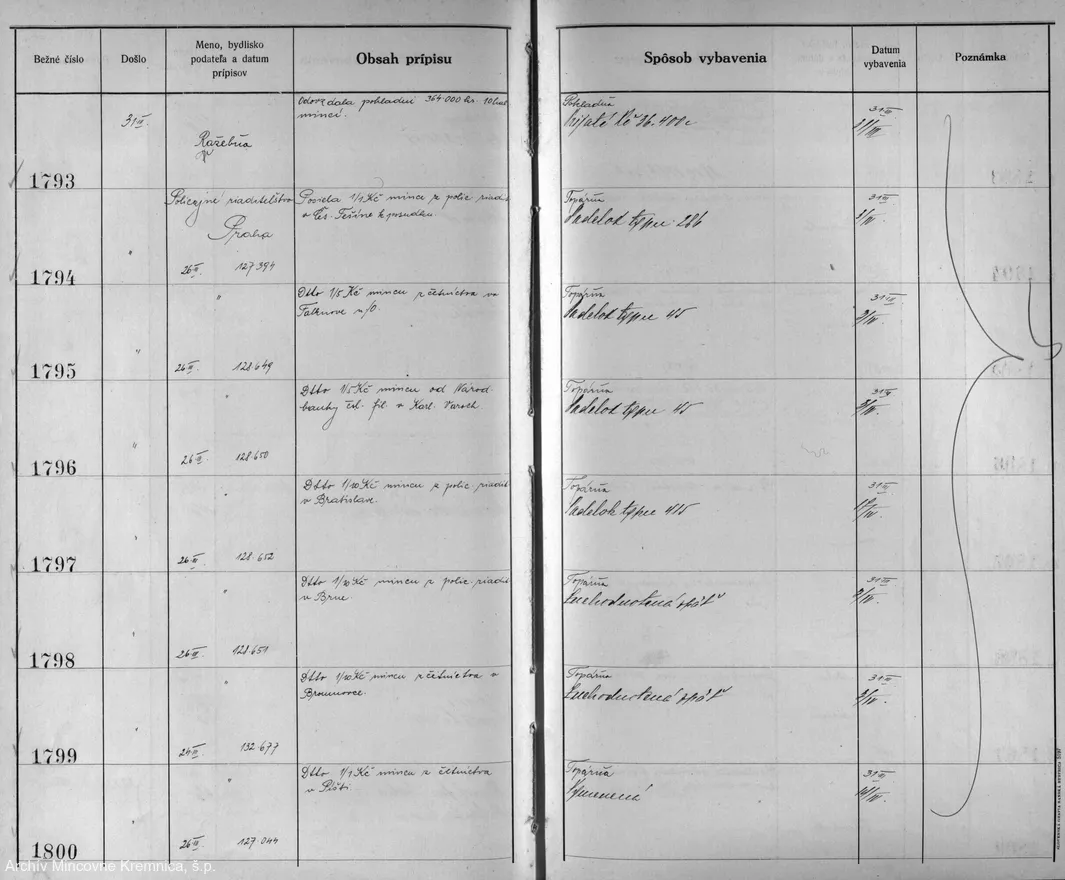 Bežné číslo
Došlo
Meno, bydlisko
podateľa a datum
prípisov
Obsah prípisu
Spôsob vybavenia
Datum
vybavenia
Poznámka
1793
31 III.
Ražebňa
Odovzdala pokladni 364.000 ks. 10 hal
mincí.
Pokladňa
31 III
1794
"
Policajné riaditeľstvo
Praha
26 III. 127.394
Posiela 1/1 Kč mincu z polic. riadit.
v Čes. Tešíne k posudku.
Topárňa
Padelok typu 286
31 III
1795
"
"
26 III. 128.649
Dtto 1/5 Kč mincu z četníctva vo
Falknove n/O.
Topárňa
Padelok typu 45
31 III.
1796
"
"
26 III. 128.650
Dtto 1/5 Kč mincu od Národ.
banky čsl. fil. v Karl. Varoch.
Topárňa
Padelok typu 45
31 III
1797
"
"
26 III. 128.652
Dtto 1/10 Kč mincu z polic. riadit.
v Bratislave.
Topárňa
Padelok typu 415
31 III
1798
"
"
26 III. 128.651
Dtto 1/10 Kč mincu z polic. riadit.
v Brne.
Topárňa
31 III
1799
"
"
24 III. 132.677
Dtto 1/10 Kč mincu z četníctva v
Broumovce.
Topárňa
31 III
1800
"
"
26 III. 127.044
Dtto 1/1 Kč mincu z četníctva
v Plšti.
Topárňa
Vymenená
31 III
Archív Mincovne Kremnica, š.p.